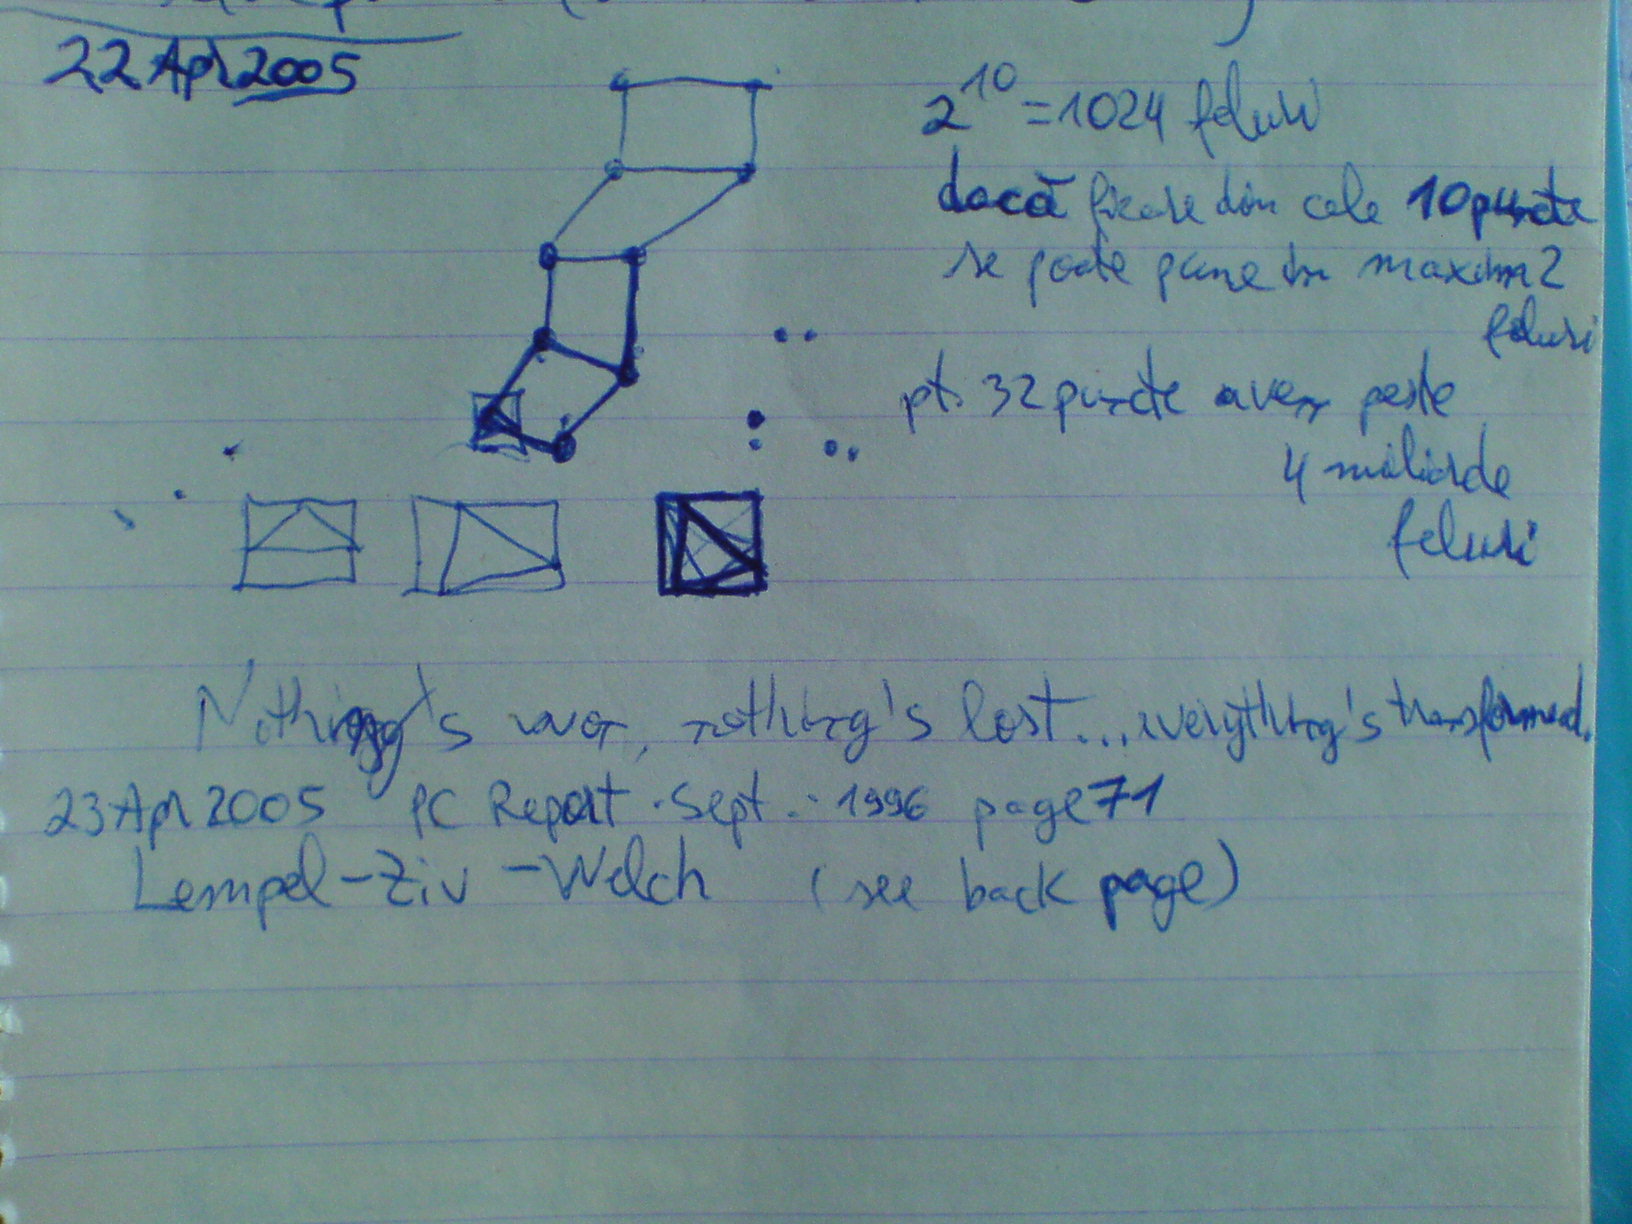 22 Apr 2005
2^10 = 1024 feluri
dacă fiecare din cele 10 puncte
se poate pune în maxim 2
feluri
pt. 32 puncte avem peste
4 miliarde
feluri
Nothing's won, nothing's lost... everything's transformed.
23 Apr 2005 PC Report · Sept. · 1996 page 71
Lempel-Ziv-Welch (see back page)